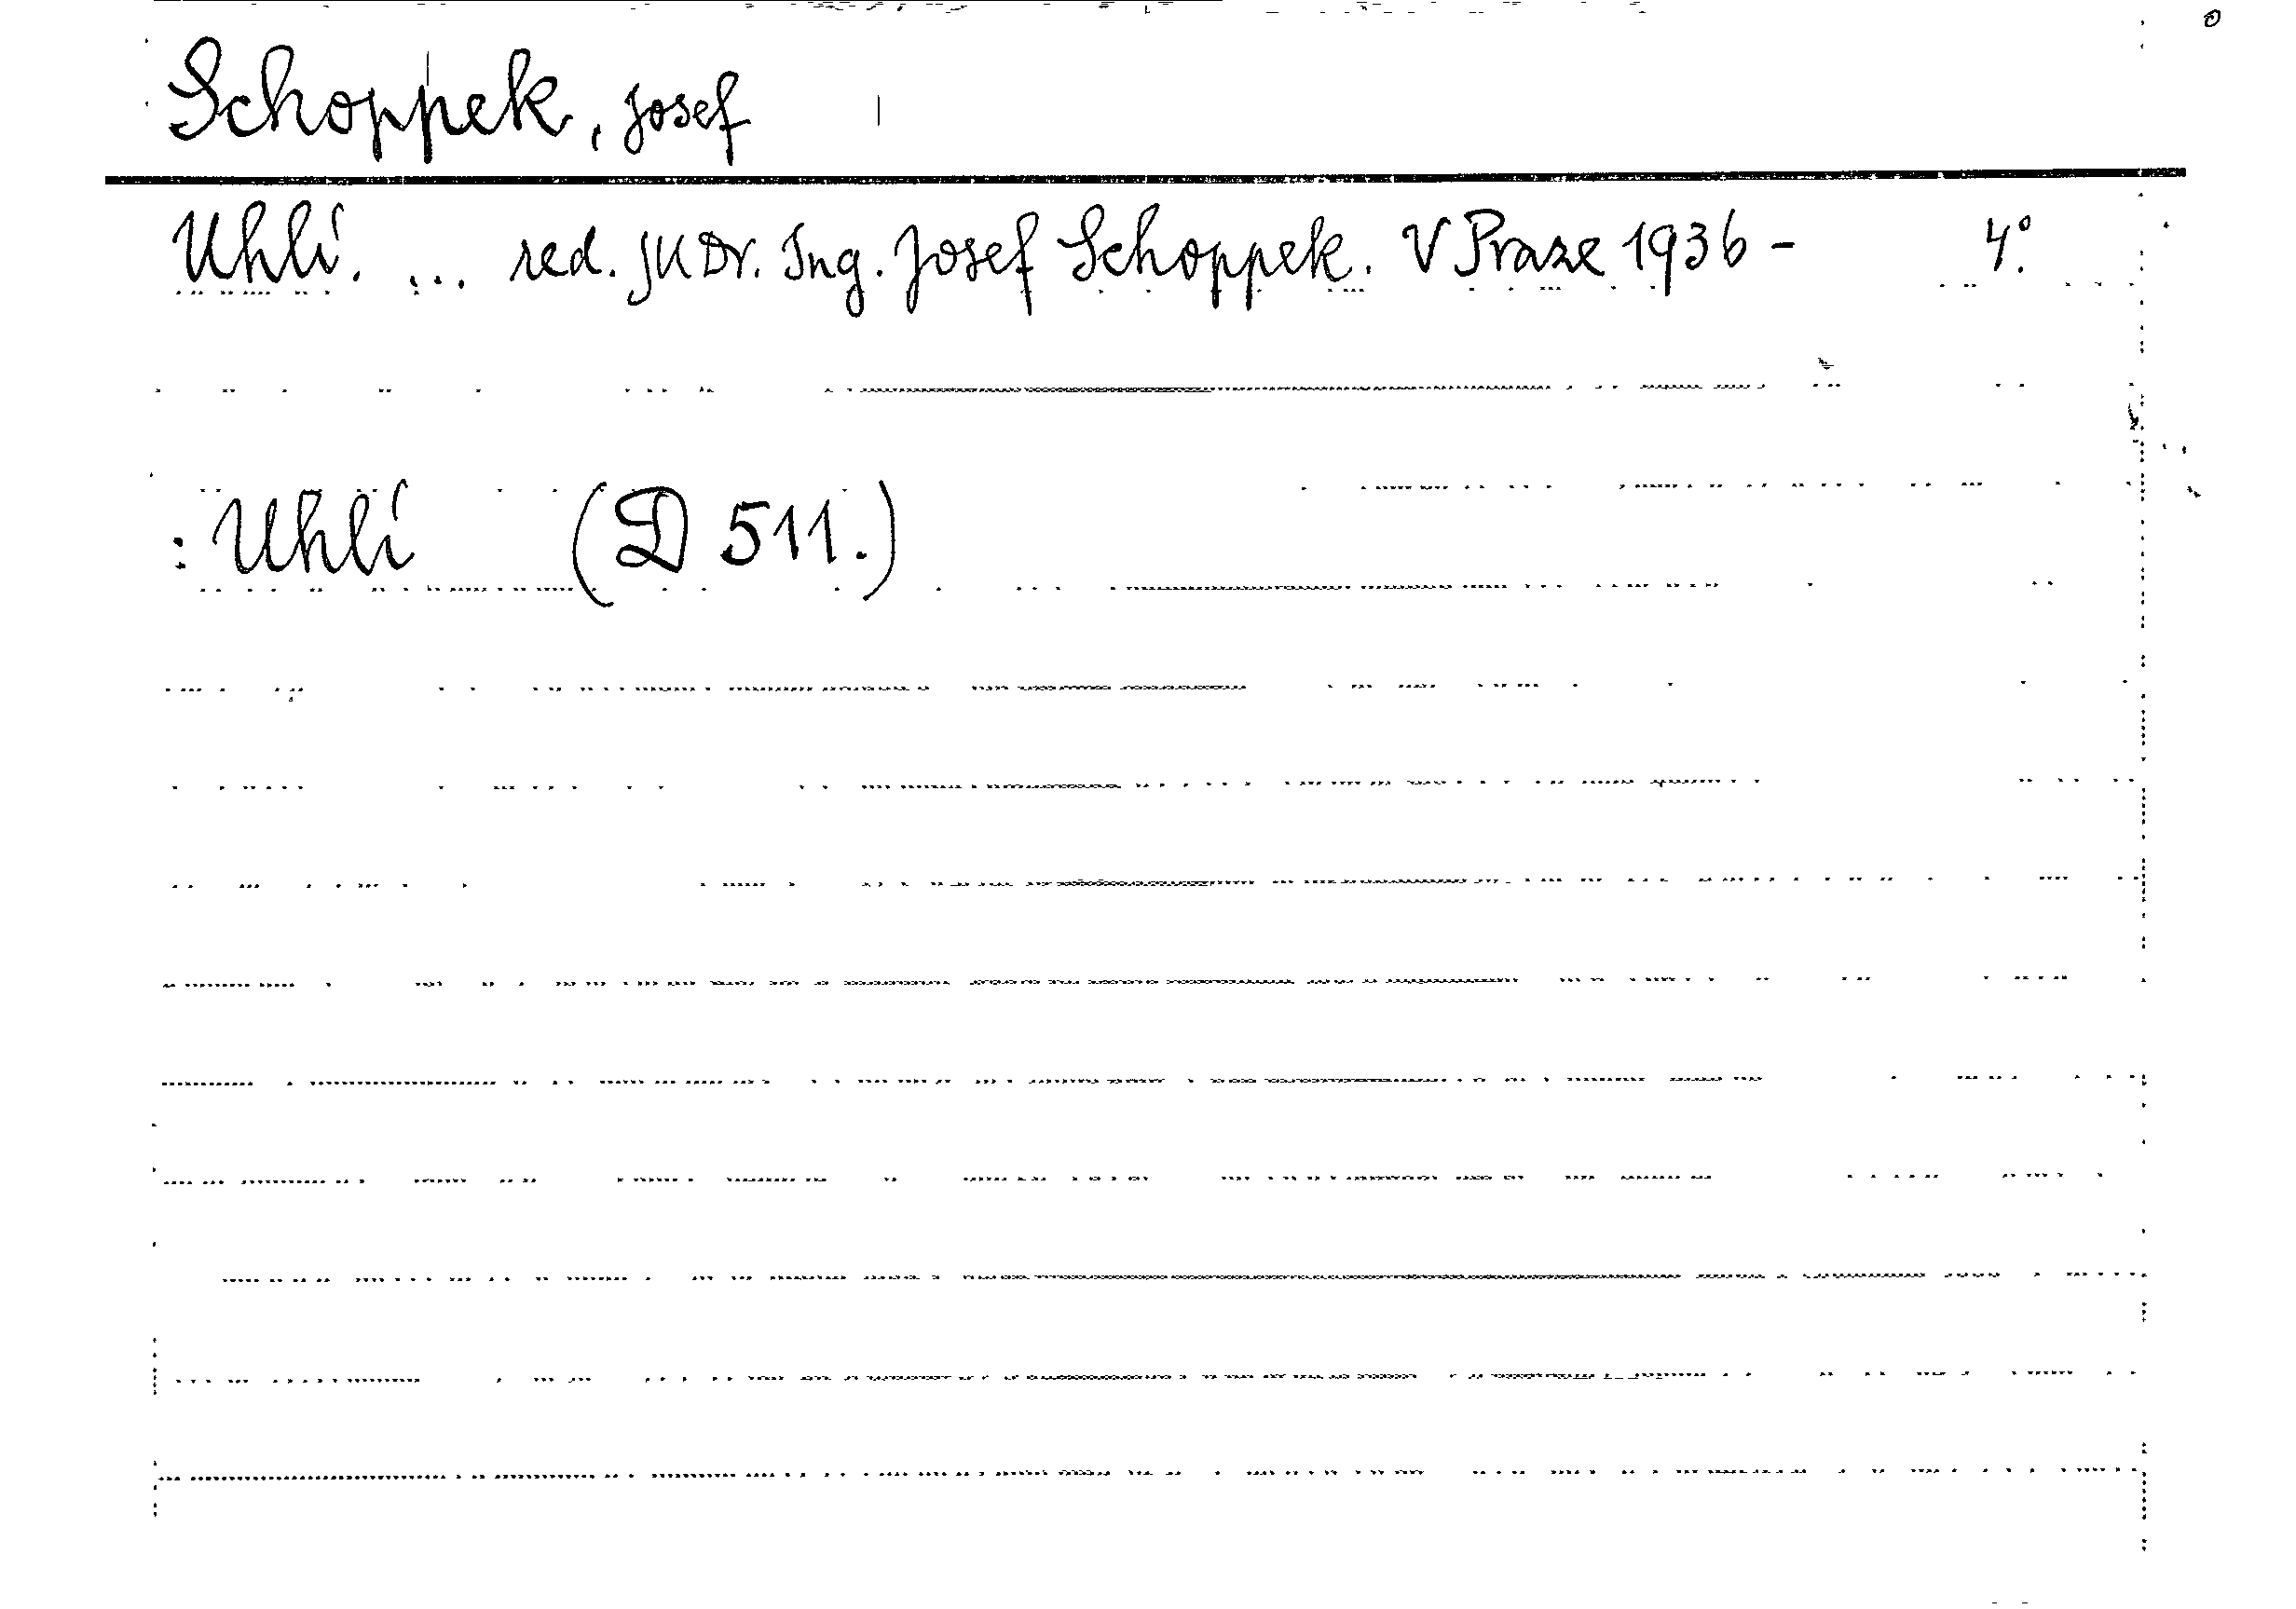 Schoppek, Josef
Uhlí. ... red. JUDr. Ing. Josef Schoppek. V Praze 1936 - 4°.
: Uhlí (D 511.)